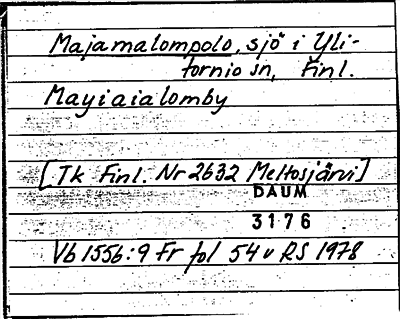 Majamalompolo, sjö i Yli-
tornio sn, Finl.
Mayiaialomby
[Tk Finl. Nr 2632 Meltosjärvi]
DAUM
3176
Vb 1556:9 Fr fol 54 v RS 1978